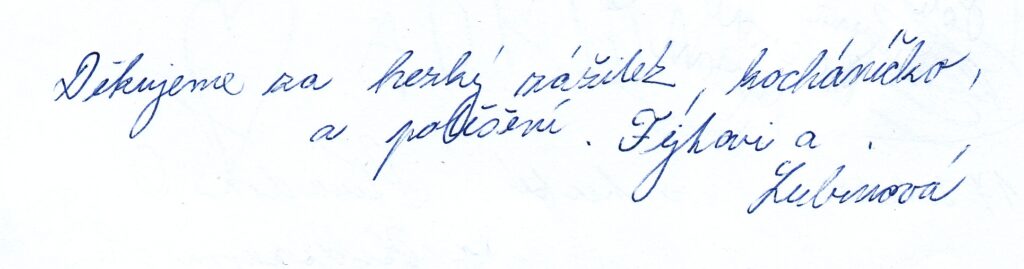 Děkujeme za hezký zážitek, kocháníčko,
a potěšení. Fýhovi a
Lubinová